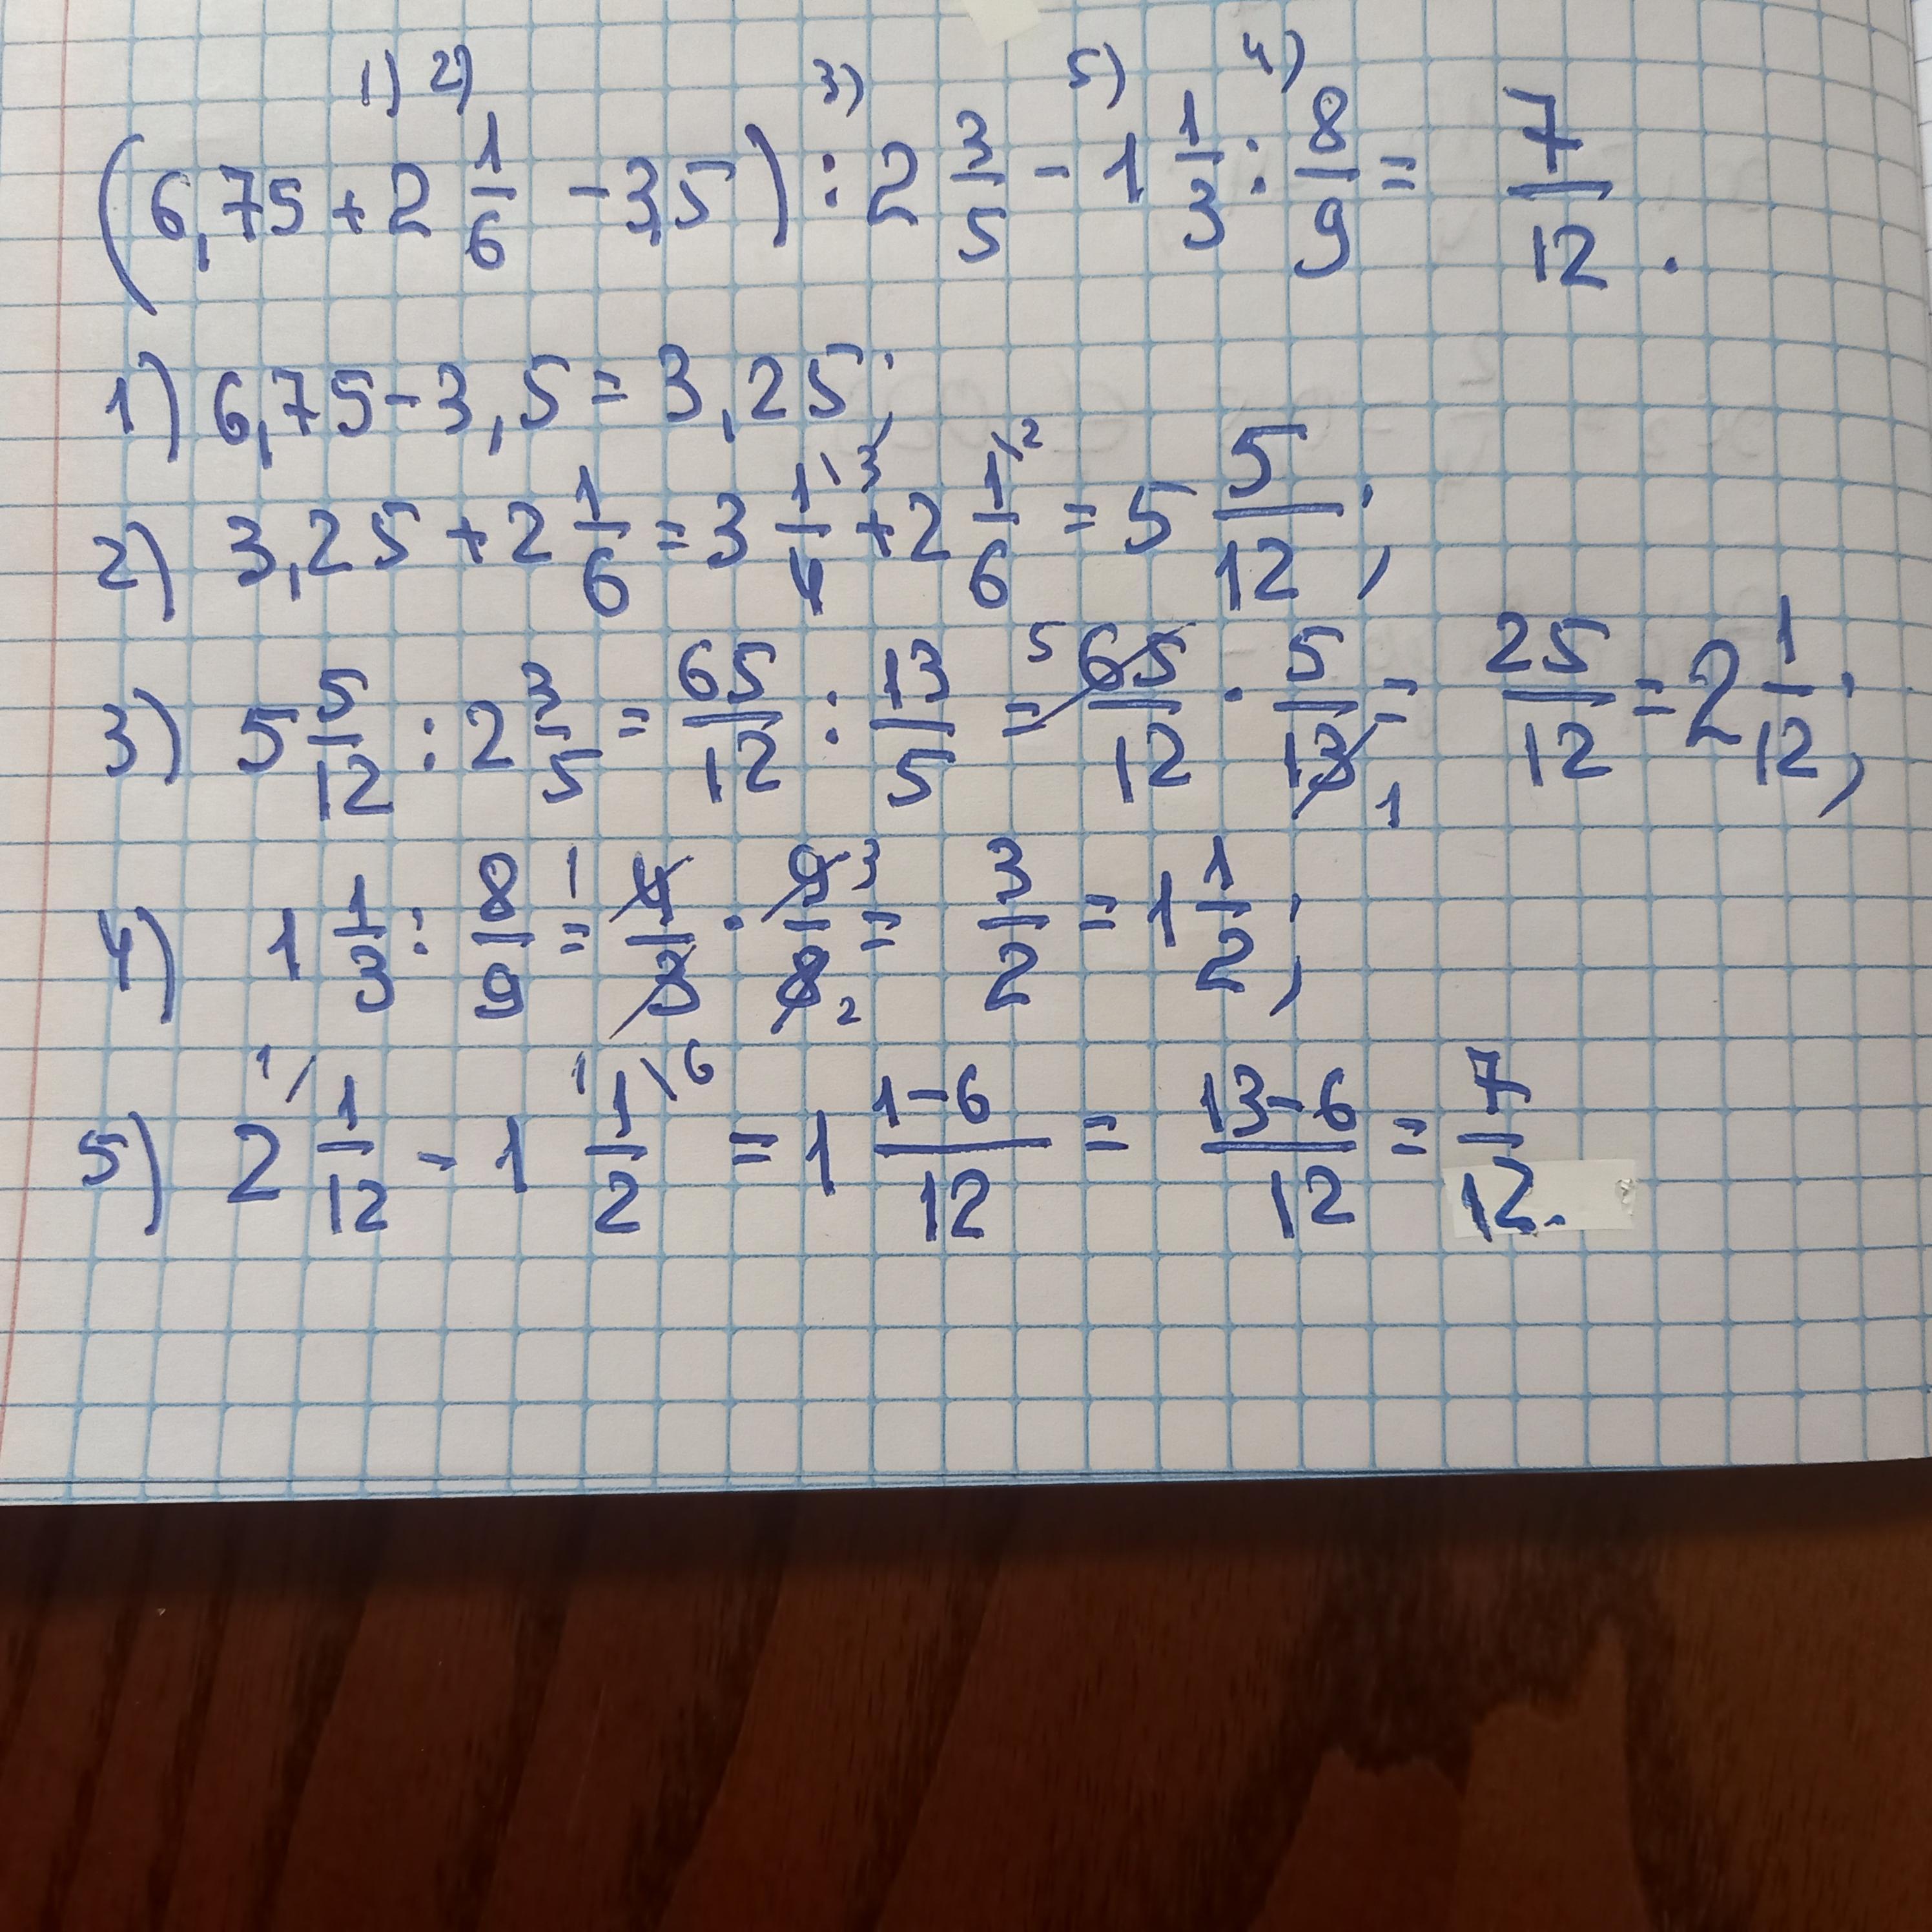 1) 2) 3) 5) 4)
(6,75 + 2 1/6 - 3,5) : 2 3/5 - 1 1/3 : 8/9 = 7/12.
1) 6,75 - 3,5 = 3,25;
2) 3,25 + 2 1/6 = 3 1\3/4 + 2 1\2/6 = 5 5/12;
3) 5 5/12 : 2 3/5 = 65/12 : 13/5 = 5 65/12 · 5/13 1 = 25/12 = 2 1/12;
4) 1 1/3 : 8/9 = 1 4/3 · 9 3/8 2 = 3/2 = 1 1/2;
5) 2 1/ 1/12 - 1 1 1\6/2 = 1 1-6/12 = 13-6/12 = 7/12.